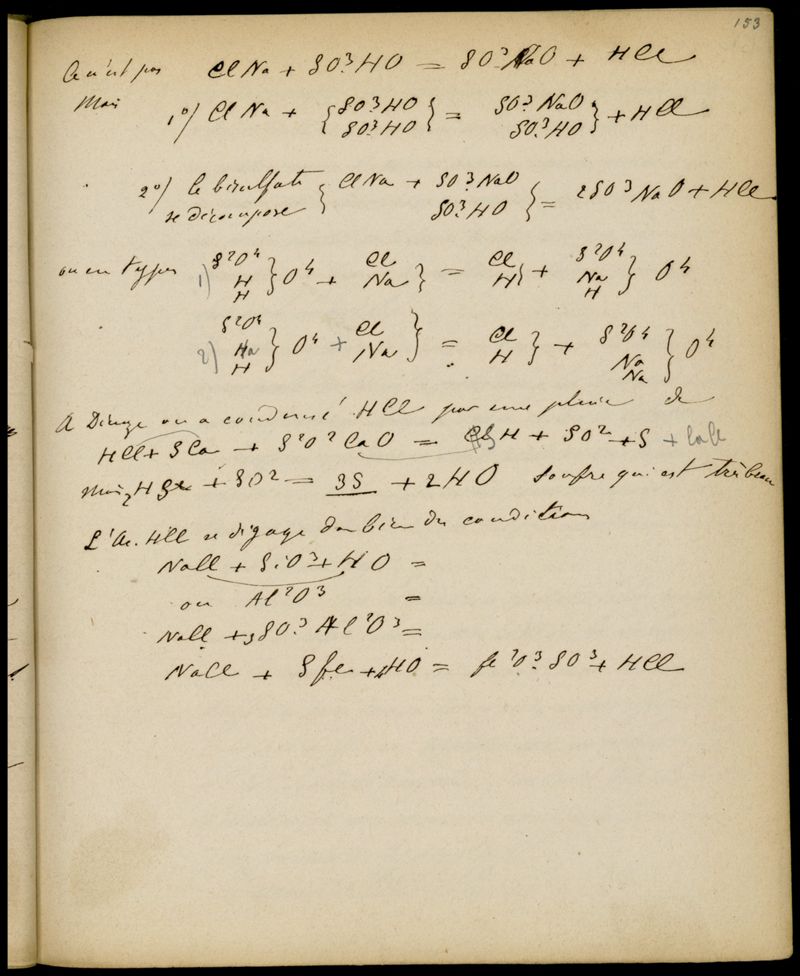 153
Ce n'est pas ClNa + SO³HO = SO³NaO + HCl
Mais 1°) ClNa + { SO³HO SO³HO } = SO³NaO SO³HO } + HCl
2°) le bisulfate se décompose { ClNa + SO³NaO SO³HO } = 2SO³NaO + HCl
ou en types 1) S²O⁴ H H } O⁴ + Cl Na } = Cl H } + S²O⁴ Na H } O⁴
2) S²O⁴ Na H } O⁴ + Cl Na } = Cl H } + S²O⁴ Na Na } O⁴
A Dieuze on a condensé HCl par une pluie de
HCl + SCa + S²O²CaO = HS + SO² + S + CaCl
mais 2HS + SO² = 3S + 2HO Soufre qui est très beau
L'Ac. HCl se dégage dans bien des conditions
NaCl + SiO³ + HO =
ou Al²O³ =
NaCl + 3SO³Al²O³ =
NaCl + SFe + HO = fe²O³SO³ + HCl